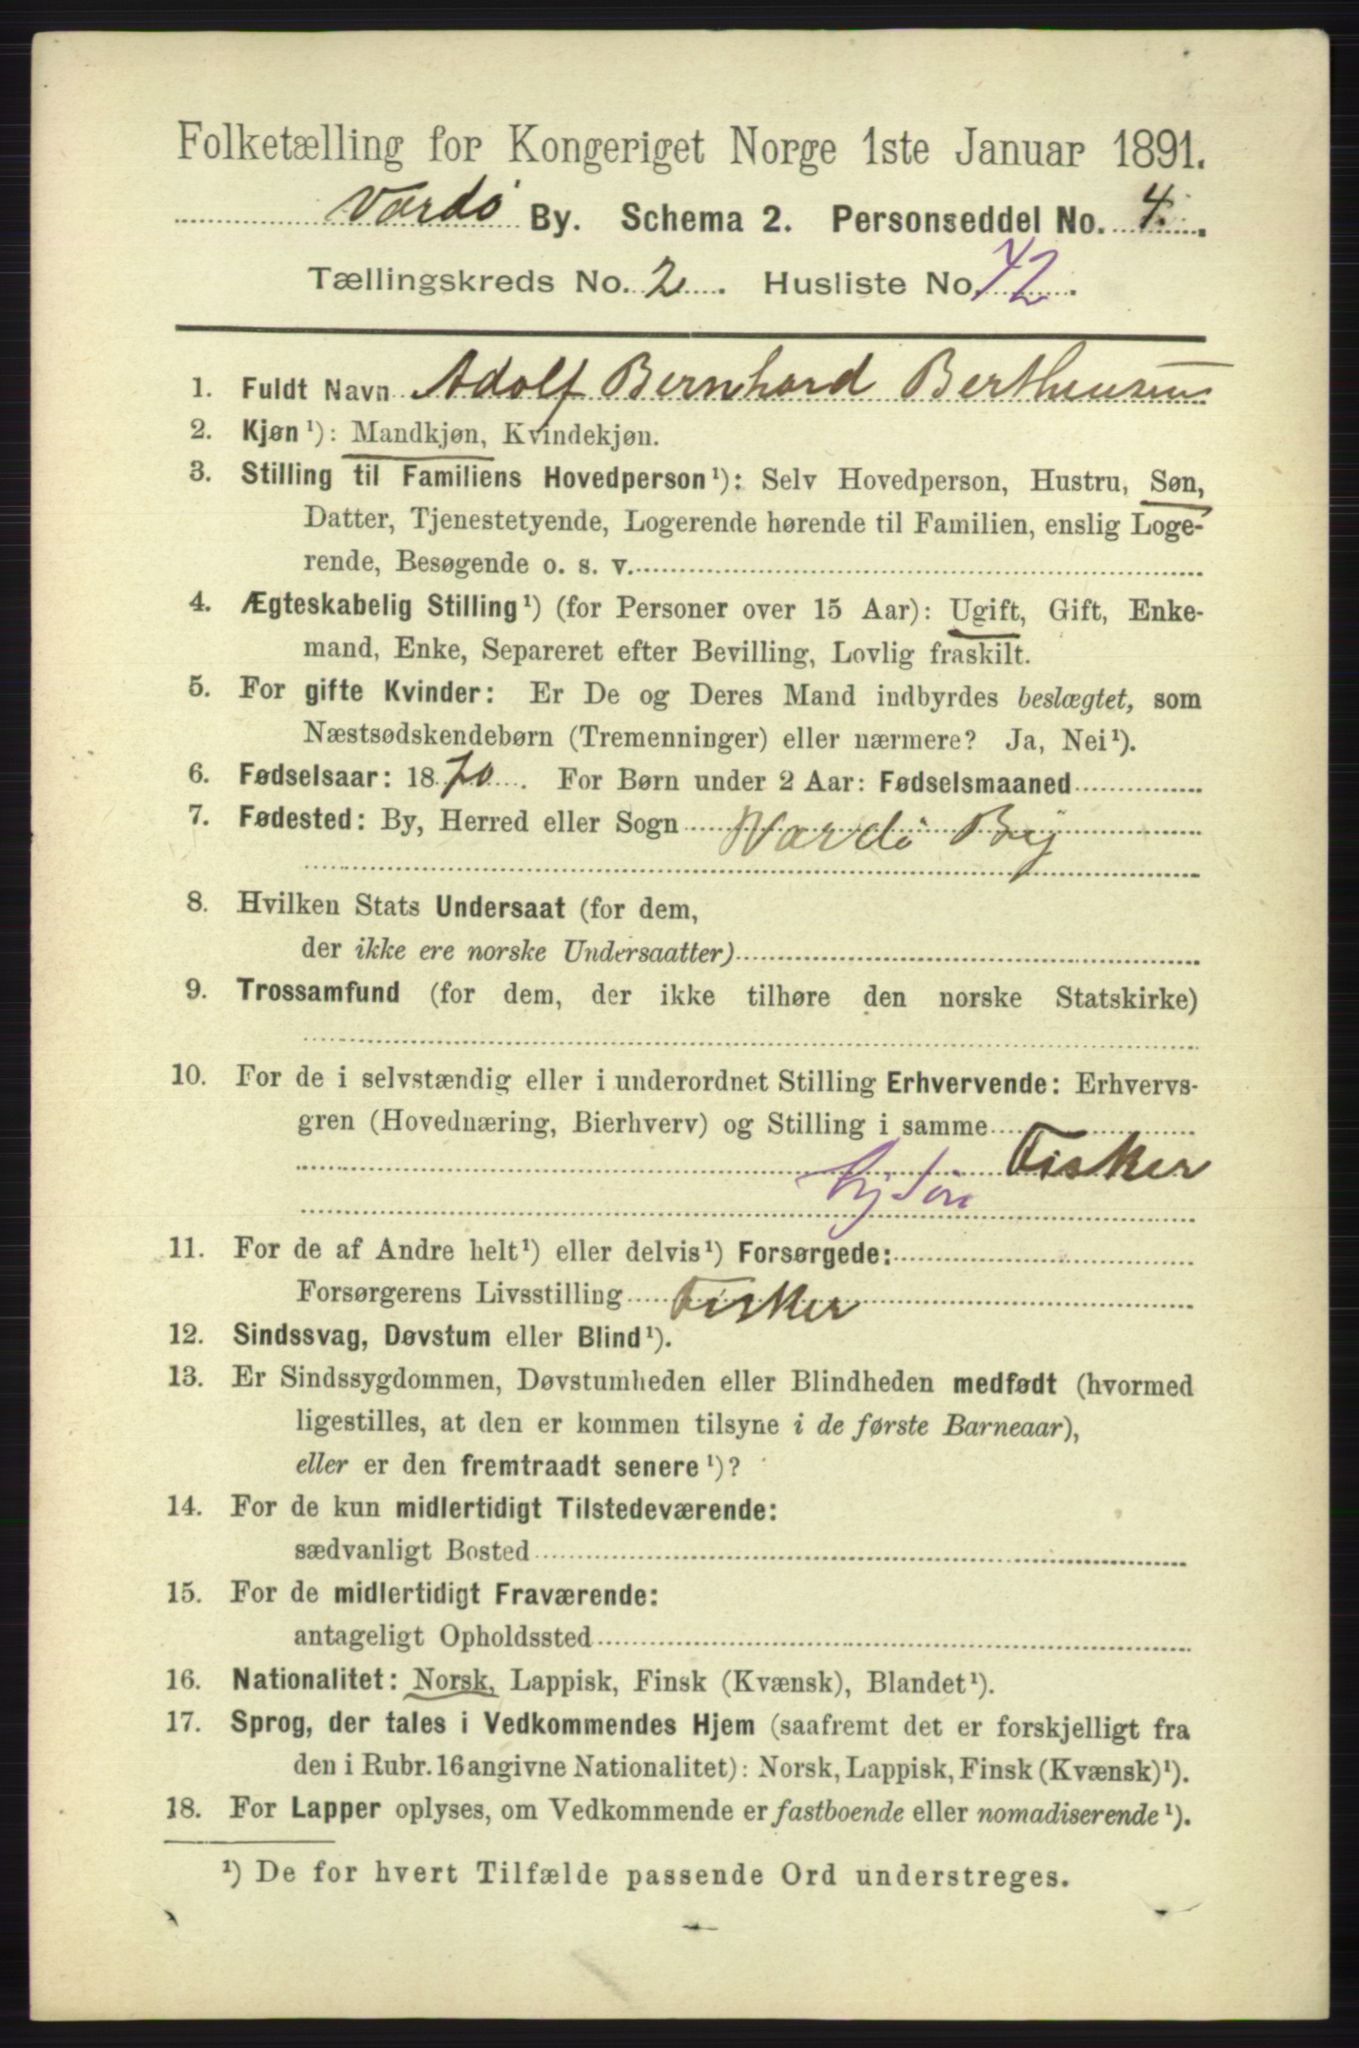 Folketælling for Kongeriget Norge 1ste Januar 1891.
Vardø By. Schema 2. Personseddel No. 4.
Tællingskreds No. 2. Husliste No. 42.
1. Fuldt Navn Adolf Bernhard Bertheusen
2. Kjøn ¹): Mandkjøn, Kvindekjøn.
3. Stilling til Familiens Hovedperson ¹): Selv Hovedperson, Hustru, Søn,
Datter, Tjenestetyende, Logerende hørende til Familien, enslig Loge-
rende, Besøgende o. s. v.
4. Ægteskabelig Stilling ¹) (for Personer over 15 Aar): Ugift, Gift, Enke-
mand, Enke, Separeret efter Bevilling, Lovlig fraskilt.
5. For gifte Kvinder: Er De og Deres Mand indbyrdes beslægtet, som
Næstsødskendebørn (Tremenninger) eller nærmere? Ja, Nei ¹).
6. Fødselsaar: 1870. For Børn under 2 Aar: Fødselsmaaned
7. Fødested: By, Herred eller Sogn Wardø By
8. Hvilken Stats Undersaat (for dem,
der ikke ere norske Undersaatter)
9. Trossamfund (for dem, der ikke tilhøre den norske Statskirke)
10. For de i selvstændig eller i underordnet Stilling Erhvervende: Erhvervs-
gren (Hovednæring, Bierhverv) og Stilling i samme
Fisker
11. For de af Andre helt ¹) eller delvis ¹) Forsørgede:
Forsørgerens Livsstilling Fisker
12. Sindssvag, Døvstum eller Blind ¹).
13. Er Sindssygdommen, Døvstumheden eller Blindheden medfødt (hvormed
ligestilles, at den er kommen tilsyne i de første Barneaar),
eller er den fremtraadt senere ¹)?
14. For de kun midlertidigt Tilstedeværende:
sædvanligt Bosted
15. For de midlertidigt Fraværende:
antageligt Opholdssted
16. Nationalitet: Norsk, Lappisk, Finsk (Kvænsk), Blandet ¹).
17. Sprog, der tales i Vedkommendes Hjem (saafremt det er forskjelligt fra
den i Rubr. 16 angivne Nationalitet): Norsk, Lappisk, Finsk (Kvænsk) ¹).
18. For Lapper oplyses, om Vedkommende er fastboende eller nomadiserende ¹).
¹) De for hvert Tilfælde passende Ord understreges.